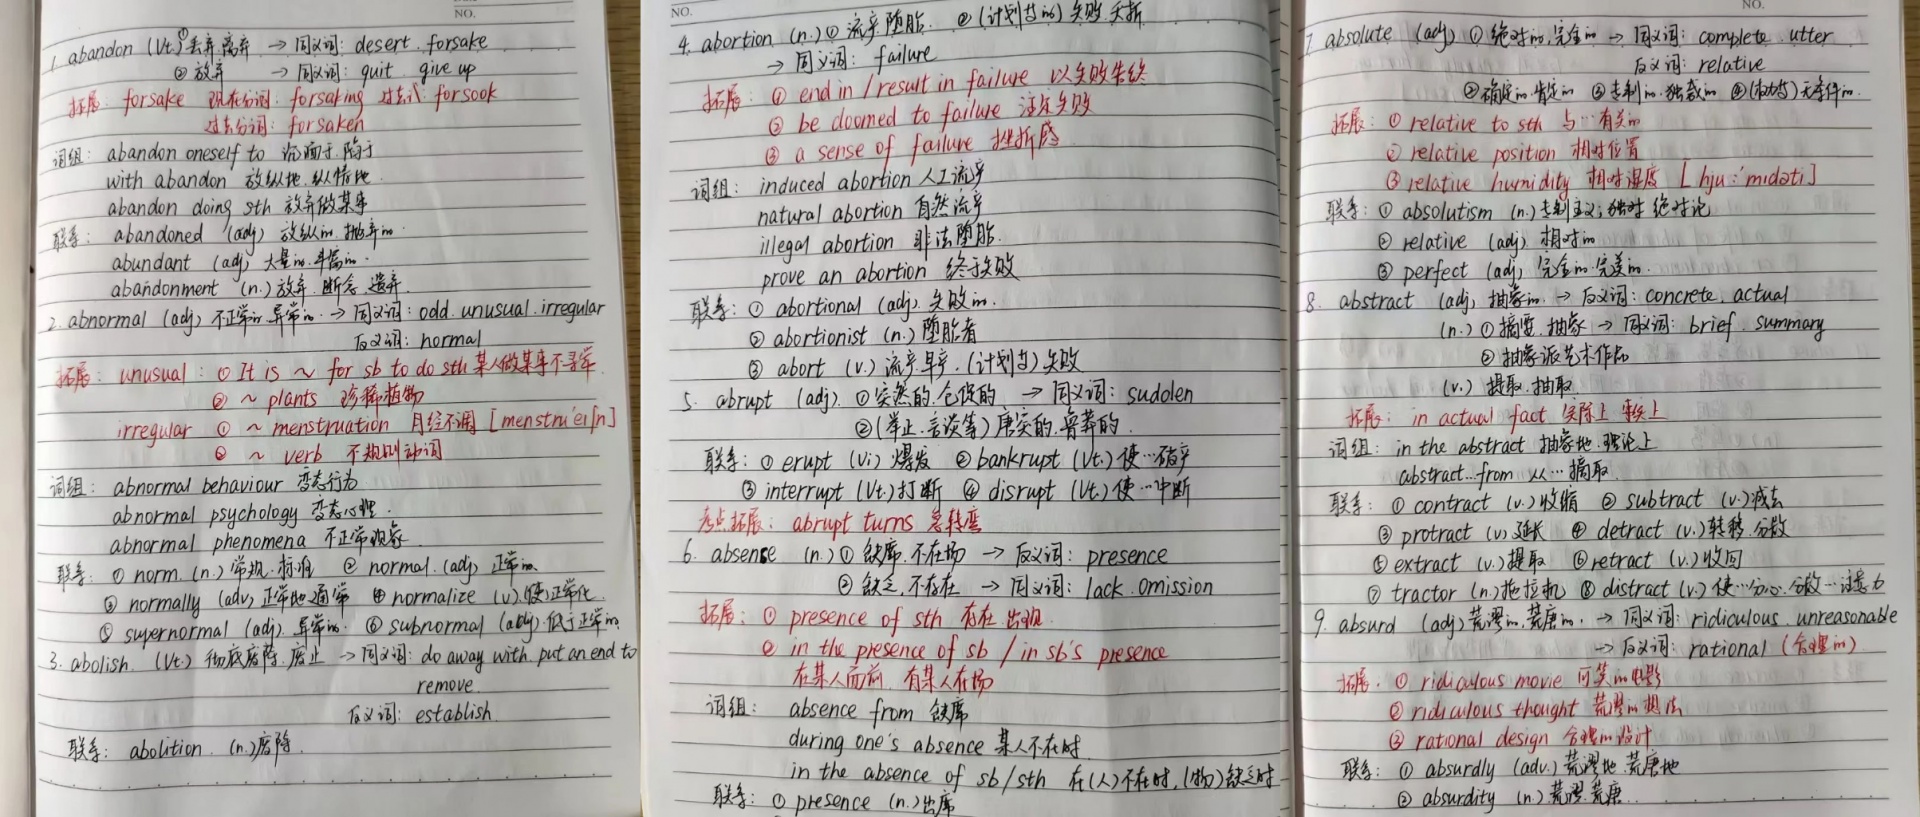 NO.
1. abandon (vt.) ① 丢弃.离弃 → 同义词: desert. forsake
② 放弃 → 同义词: quit. give up
拓展: forsake 现在分词: forsaking 过去式: forsook
过去分词: forsaken
词组: abandon oneself to 沉湎于.陷于
with abandon 放纵地.纵情地
abandon doing sth 放弃做某事
联系: abandoned (adj) 放纵的.抛弃的.
abundant (adj) 大量的.丰富的.
abandonment (n.) 放弃.断念.遗弃.
2. abnormal (adj) 不正常的.异常的. → 同义词: odd. unusual. irregular
反义词: normal
拓展: unusual: ① It is ~ for sb to do sth 某人做某事不寻常
② ~ plants 珍稀植物
irregular ① ~ menstruation 月经不调 [menstru'eiʃn]
② ~ verb 不规则动词
词组: abnormal behaviour 变态行为
abnormal psychology 变态心理.
abnormal phenomena 不正常现象.
联系: ① norm. (n.) 常规.标准 ② normal. (adj) 正常的.
③ normally (adv) 正常地.通常 ④ normalize (v.) 使正常化.
⑤ supernormal (adj) 异常的. ⑥ subnormal (adj). 低于正常的.
3. abolish. (vt.) 彻底废除.废止 → 同义词: do away with. put an end to
remove.
反义词: establish.
联系: abolition. (n.) 废除.
NO.
4. abortion (n.) ① 流产.堕胎. ② (计划等的) 失败.夭折
→ 同义词: failure
拓展: ① end in / result in failure 以失败告终
② be doomed to failure 注定失败
③ a sense of failure 挫折感
词组: induced abortion 人工流产
natural abortion 自然流产
illegal abortion 非法堕胎.
prove an abortion 终于失败
联系: ① abortional (adj). 失败的.
② abortionist (n.) 堕胎者
③ abort (v.) 流产.早产. (计划等) 失败
5. abrupt (adj). ① 突然的.仓促的 → 同义词: sudden
② (举止.言谈等) 唐突的.鲁莽的.
联系: ① erupt (vi) 爆发 ② bankrupt (vt.) 使…破产
③ interrupt (vt.) 打断 ④ disrupt (vt.) 使…中断
考点拓展: abrupt turns 急转弯
6. absense (n.) ① 缺席.不在场 → 反义词: presence
② 缺乏.不存在 → 同义词: lack. omission
拓展: ① presence of sth 存在.出现.
② in the presence of sb / in sb's presence
在某人面前.有某人在场
词组: absence from 缺席
during one's absence 某人不在时
in the absence of sb/sth 在(人)不在时, (物)缺乏时
联系: ① presence (n.) 出席
NO.
7. absolute (adj) ① 绝对的.完全的 → 同义词: complete. utter
反义词: relative
② 确定的.肯定的 ③ 专制的.独裁的 ④ 无条件的.
拓展: ① relative to sth 与…有关的
② relative position 相对位置
③ relative humidity 相对湿度 [hju:'mɪdəti]
联系: ① absolutism (n.) 专制主义; 绝对论
② relative (adj) 相对的
③ perfect (adj) 完全的.完美的.
8. abstract (adj) 抽象的. → 反义词: concrete. actual
(n.) ① 摘要.抽象 → 同义词: brief. summary
② 抽象派艺术作品
(v.) 提取.抽取
拓展: in actual fact 实际上.事实上
词组: in the abstract 抽象地.理论上
abstract…from 从…摘取.
联系: ① contract (v.) 收缩 ② subtract (v.) 减去
③ protract (v.) 延长 ④ detract (v.) 转移.分散
⑤ extract (v.) 提取 ⑥ retract (v.) 收回
⑦ tractor (n.) 拖拉机 ⑧ distract (v.) 使…分心.分散…注意力
9. absurd (adj) 荒谬的.荒唐的. → 同义词: ridiculous. unreasonable
→ 反义词: rational (合理的)
拓展: ① ridiculous movie 可笑的电影
② ridiculous thought 荒谬的想法
③ rational design 合理的设计
联系: ① absurdly (adv.) 荒谬地.荒唐地
② absurdity (n.) 荒谬.荒唐.